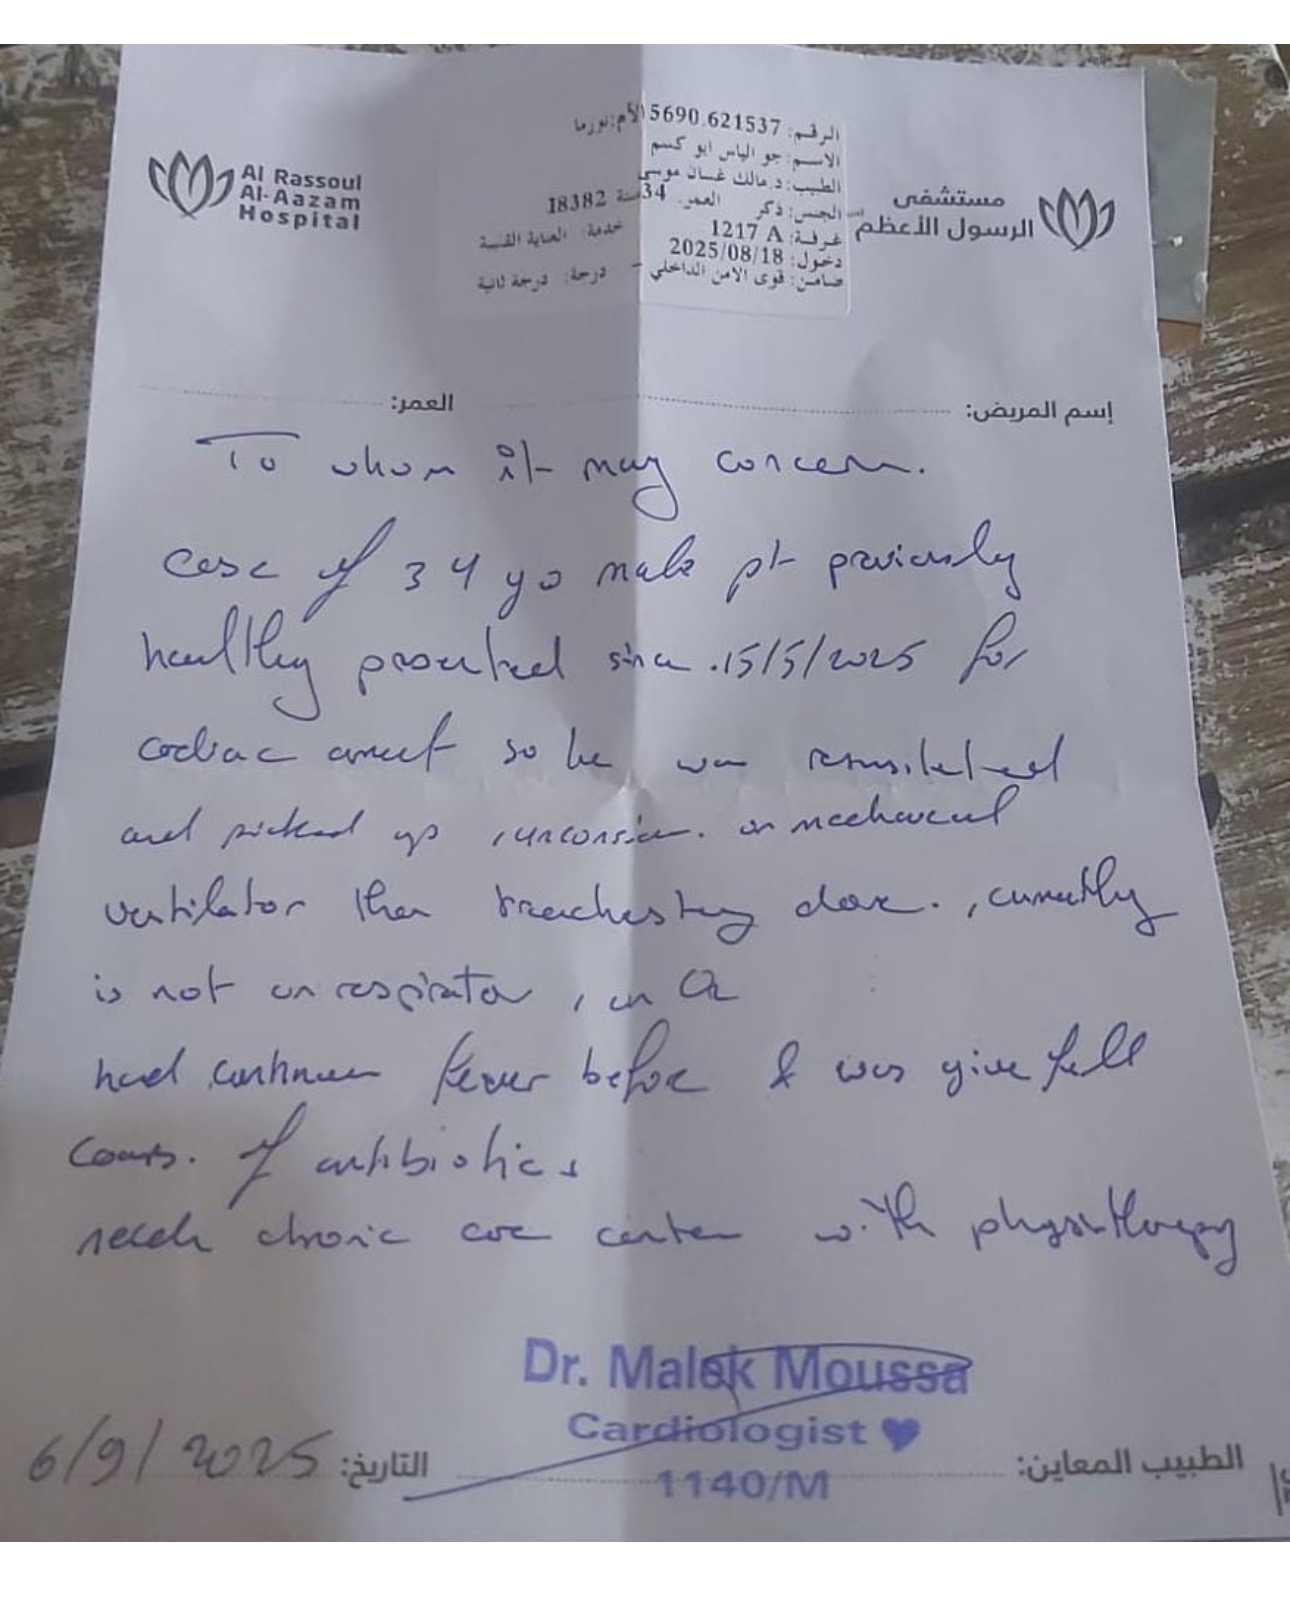 Al Rassoul
Al-Aazam
Hospital
مستشفى
الرسول الأعظم
الرقم: 5690.621537 الأم: نورما
الاسم: جو الياس ابو كسم
الطبيب: د.مالك غسان موسى
الجنس: ذكر العمر: 34 سنة 18382
غرفة: 1217 A خدمة: العناية القلبية
دخول: 2025/08/18
ضامن: قوى الامن الداخلي - درجة: درجة ثانية
إسم المريض: العمر:
To whom it may concern.
case of 34 yo male pt previously
healthy presented since 15/5/2025 for
cardiac arrest so he was
and picked up, on mechanical
ventilator then done., currently
is not on respirator, on O2
had fever before & was give full
cours. of antibiotics
needs chronic care center with physiotherapy
Dr. Malek Moussa
Cardiologist ♥
1140/M
الطبيب المعاين:
التاريخ: 6/9/2025